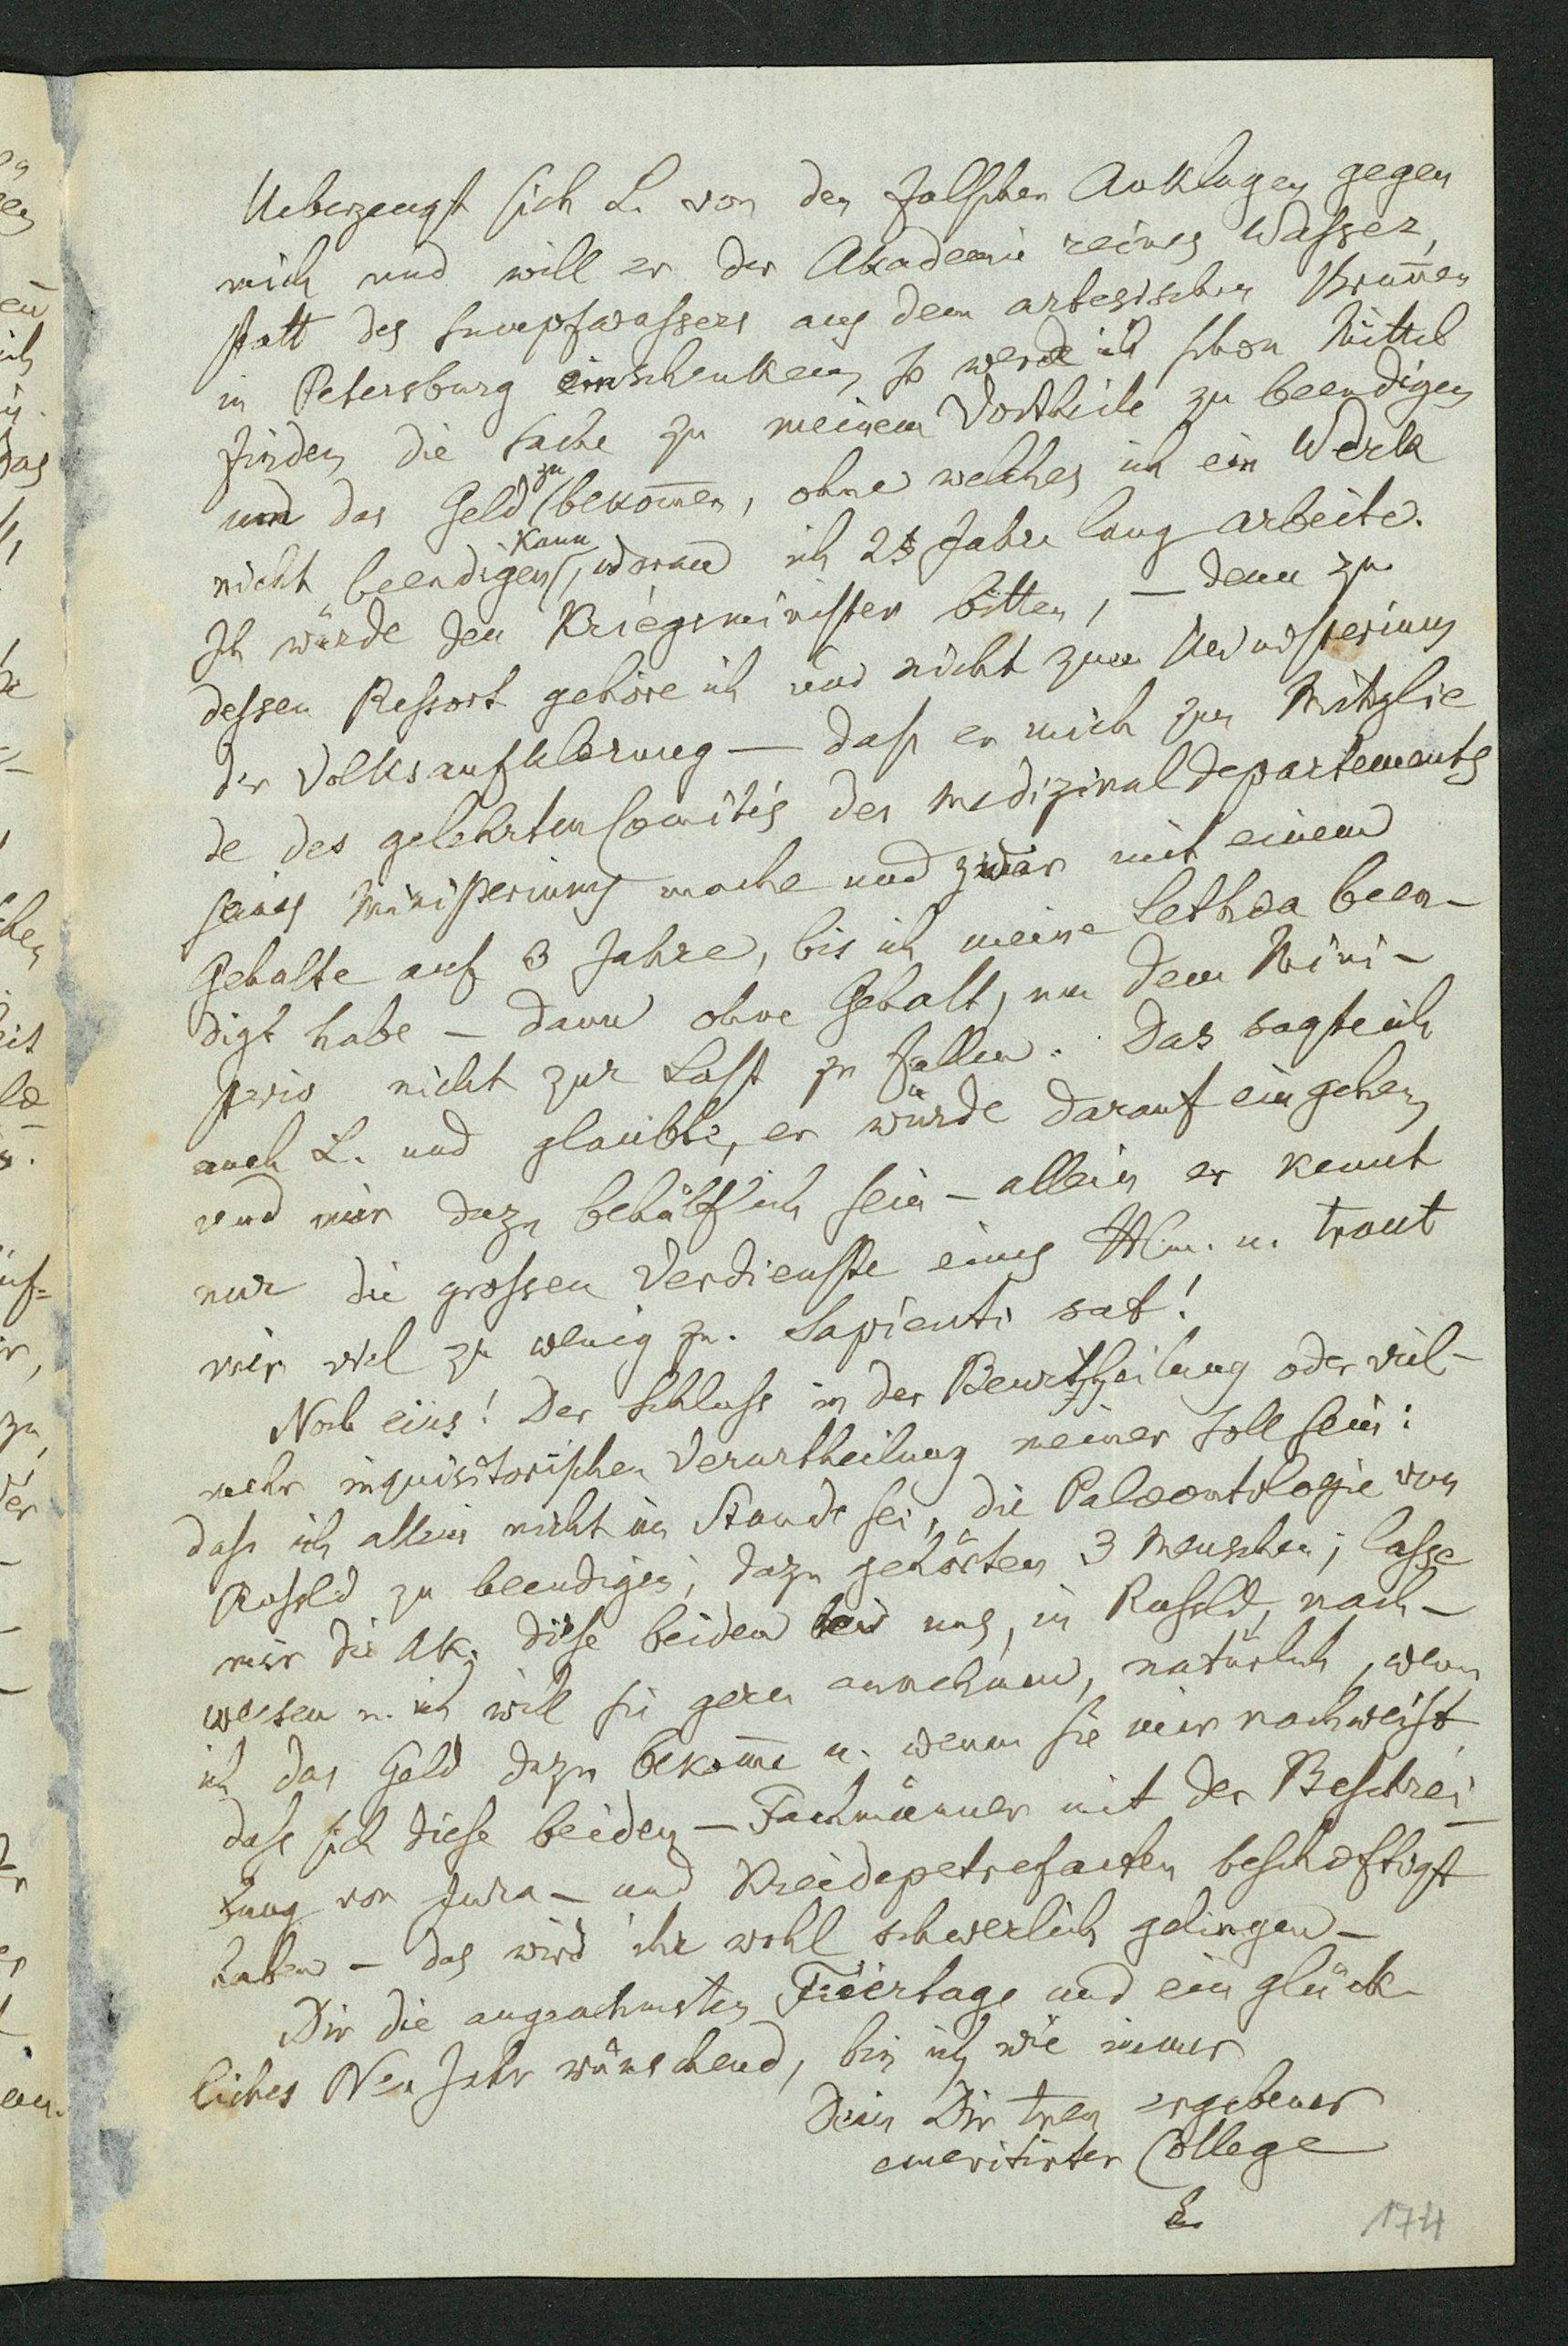 Ueberzeugt sich L. von den falschen Anklagen gegen
mich und will er der Akademie reines Wasser,
statt des Sumpfwassers aus dem artesischen Brunnen
in Petersburg einschenken, so werde ich schon Mittel
finden, die Sache zu meinem Vortheile zu beendigen
und das Geld zu bekom̄en, ohne welches ich ein Werk
nicht beendigen kann, woran ich 25 Jahre lang arbeite.
Ich würde den Kriegsminister bitten, – denn zu
dessen Ressort gehöre ich und nicht zum Ministerium
der Volksaufklärung – dass er mich zum Mitglie
de des gelehrten Comités des Medizinaldepartements
seines Ministeriums mache und zwar mit einem
Gehalte auf 3 Jahre, bis ich meine Lethaea been-
digt habe – dann ohne Gehalt, um dem Mini-
sterio nicht zur Last zu fallen. Das sagte ich
auch L. und glaubte, er würde darauf eingehen
und mir dazu behülflich sein – allein er kennt
nur die grossen Verdienste eines u. traut
mir viel zu wenig zu. Sapienti sat!
Noch eins! Der Schluss in der Beurtheilung oder viel-
mehr inquisitorischen Verurtheilung meiner soll sein:
dass ich allein nicht im Stande sei, die Palaeontologie von
Russld zu beendigen; dazu gehörten 3 Menschen; lasse
mir die Ak. diese beiden bei uns, in Russld, nach-
weisen u. ich will sie gern annehmen, natürlich, wenn
ich das Geld dazu bekom̄e u. wenn sie mir nachweist,
dass sich diese beiden – Fachmänner mit der Beschrei-
bung von Jura- und Kreidepetrefacten beschaeftigt
haben – das wird ihr wohl schwerlich gelingen –
Dir die angenehmsten Feiertage und ein glück-
liches Neu Jahr wünschend, bin ich, wie immer
Dein Dir treu ergebener
emeritirter College
E
174